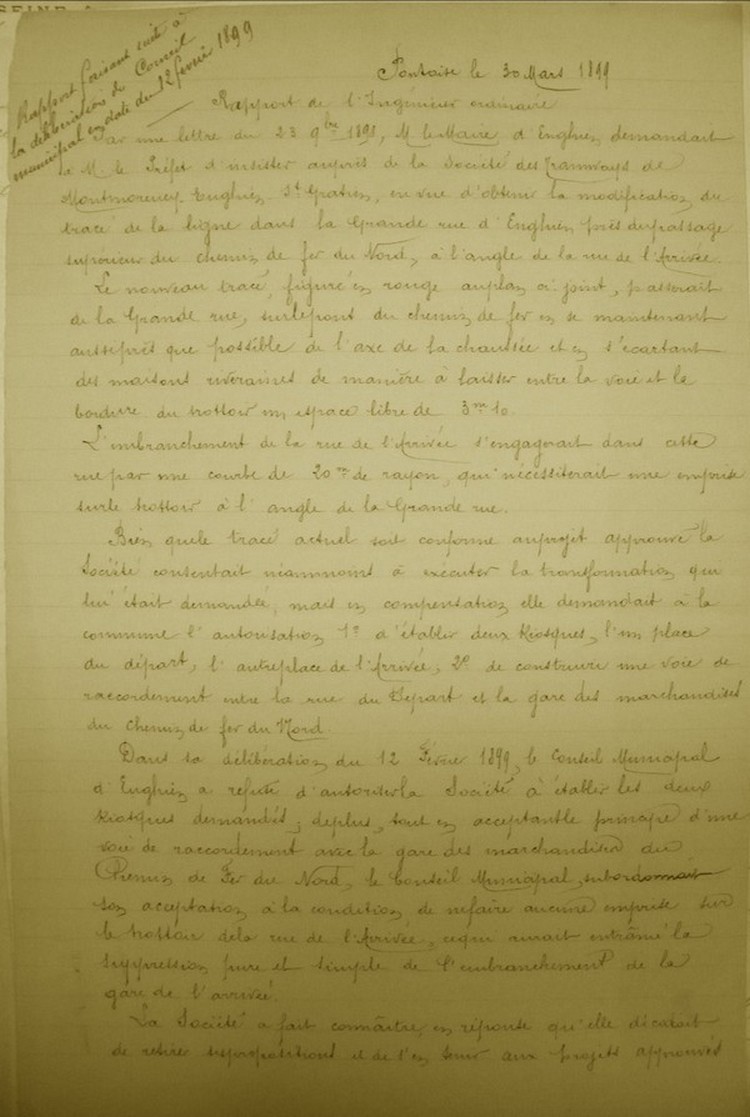 SEINE
Rapport faisant suite à
la délibération du Conseil
municipal en date du 12 février 1899
Pontoise le 30 Mars 1899
Rapport de l'Ingénieur ordinaire
Par une lettre du 23 9bre 1898, M le Maire d'Enghien demandait
à M le Préfet d'insister auprès de la Société des Tramways de
Montmorency Enghien St Gratien, en vue d'obtenir la modification du
tracé de la ligne dans la Grande rue d'Enghien près du passage
supérieur du chemin de fer du Nord, à l'angle de la rue de l'Arrivée.
Le nouveau tracé, figuré en rouge au plan ci joint, passerait
de la Grande rue, sur le pont du chemin de fer en se maintenant
aussi près que possible de l'axe de la chaussée et en s'écartant
des maisons riveraines de manière à laisser entre la voie et la
bordure du trottoir un espace libre de 3m10.
L'embranchement de la rue de l'Arrivée s'engagerait dans cette
rue par une courbe de 20m de rayon, qui nécessiterait une emprise
sur le trottoir à l'angle de la Grande rue.
Bien que le tracé actuel soit conforme au projet approuvé la
Société consentait néanmoins à exécuter la transformation qui
lui était demandée, mais en compensation elle demandait à la
commune l'autorisation 1° d'établir deux kiosques, l'un place
du départ, l'autre place de l'Arrivée, 2° de construire une voie de
raccordement entre la rue du Départ et la gare des marchandises
du chemin de fer du Nord.
Dans sa délibération du 12 Février 1899, le Conseil Municipal
d'Enghien a refusé d'autoriser la Société à établir les deux
kiosques demandés; de plus, tout en acceptant le principe d'une
voie de raccordement avec la gare des marchandises du
Chemin de Fer du Nord, le Conseil Municipal, subordonnait
son acceptation à la condition de ne faire aucune emprise sur
le trottoir de la rue de l'Arrivée, ce qui aurait entraîné la
suppression pure et simple de l'embranchement de la
gare de l'arrivée.
La Société a fait connaître, en réponse qu'elle décidait
de retirer ses propositions et de s'en tenir aux projets approuvés